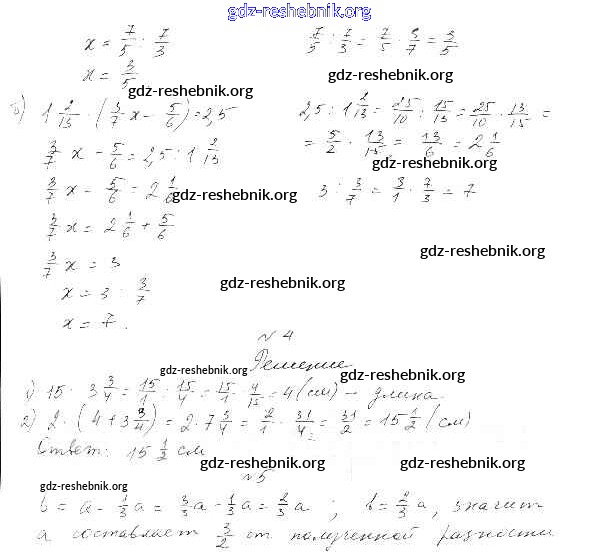 gdz-reshebnik.org
x = 7/5 : 7/3    7/5 : 7/3 = 7/5 · 3/7 = 3/5
x = 3/5
gdz-reshebnik.org    gdz-reshebnik.org
б) 1 2/13 · (3/7 x - 5/6) = 2,5    2,5 : 1 2/13 = 25/10 : 15/13 = 25/10 · 13/15 =
3/7 x - 5/6 = 2,5 : 1 2/13    = 5/2 · 13/15 = 13/6 = 2 1/6
gdz-reshebnik.org
3/7 x - 5/6 = 2 1/6    3 : 3/7 = 3/1 · 7/3 = 7
gdz-reshebnik.org
3/7 x = 2 1/6 + 5/6
gdz-reshebnik.org
3/7 x = 3
x = 3 : 3/7
gdz-reshebnik.org
x = 7.
№4
Решение
gdz-reshebnik.org    gdz-reshebnik.org
1) 15 : 3 3/4 = 15/1 : 15/4 = 15/1 · 4/15 = 4 (см) - длина.
2) 2 · (4 + 3 3/4) = 2 · 7 3/4 = 2/1 · 31/4 = 31/2 = 15 1/2 (см)
Ответ: 15 1/2 см
gdz-reshebnik.org    gdz-reshebnik.org
№5
gdz-reshebnik.org
b = a - 1/3 a = 3/3 a - 1/3 a = 2/3 a ; b = 2/3 a, значит
a составляет 3/2 от полученной разности